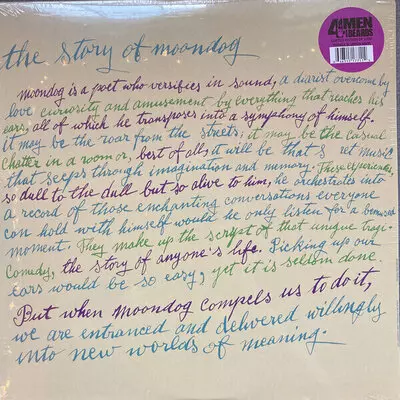 4 MEN
BEARDS
the story of moondog
moondog is a poet who versifies in sound, a diarist overcome by
love curiosity and amusement by everything that reaches his
ears, all of which he transposes into a symphony of himself.
it may be the roar from the streets; it may be the casual
chatter in a room or, best of all, it will be that s ret music
that seeps through imagination and memory. These experiences,
so dull to the dull but so alive to him, he orchestrates into
a record of those enchanting conversations everyone
can hold with himself would he only listen for a bemused
moment. They make up the script of that unique tragi-
comedy, the story of anyone's life. Picking up our
ears would be so easy; yet it is seldom done.
But when moondog compels us to do it,
we are entranced and delivered willingly
into new worlds of meaning.